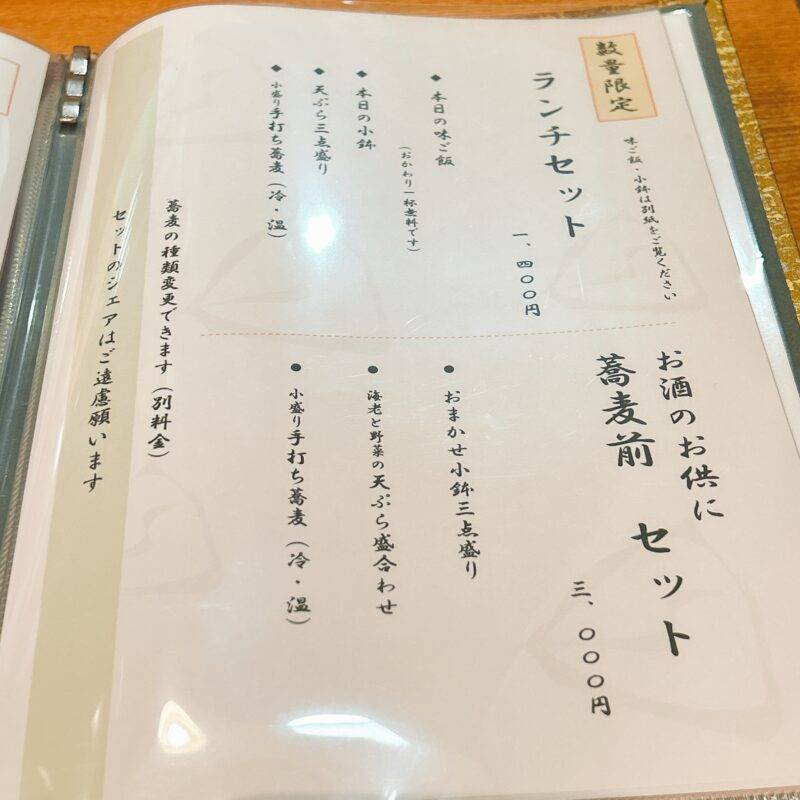 数量限定
ランチセット
味ご飯・小鉢は別紙をご覧ください
一、四〇〇円
◆本日の味ご飯
(おかわり一杯無料です)
◆本日の小鉢
◆天ぷら三点盛り
◆小盛り手打ち蕎麦(冷・温)
お酒のお供に
蕎麦前 セット
三、〇〇〇円
●おまかせ小鉢三点盛り
●海老と野菜の天ぷら盛合わせ
●小盛り手打ち蕎麦(冷・温)
蕎麦の種類変更できます(別料金)
セットのシェアはご遠慮願います